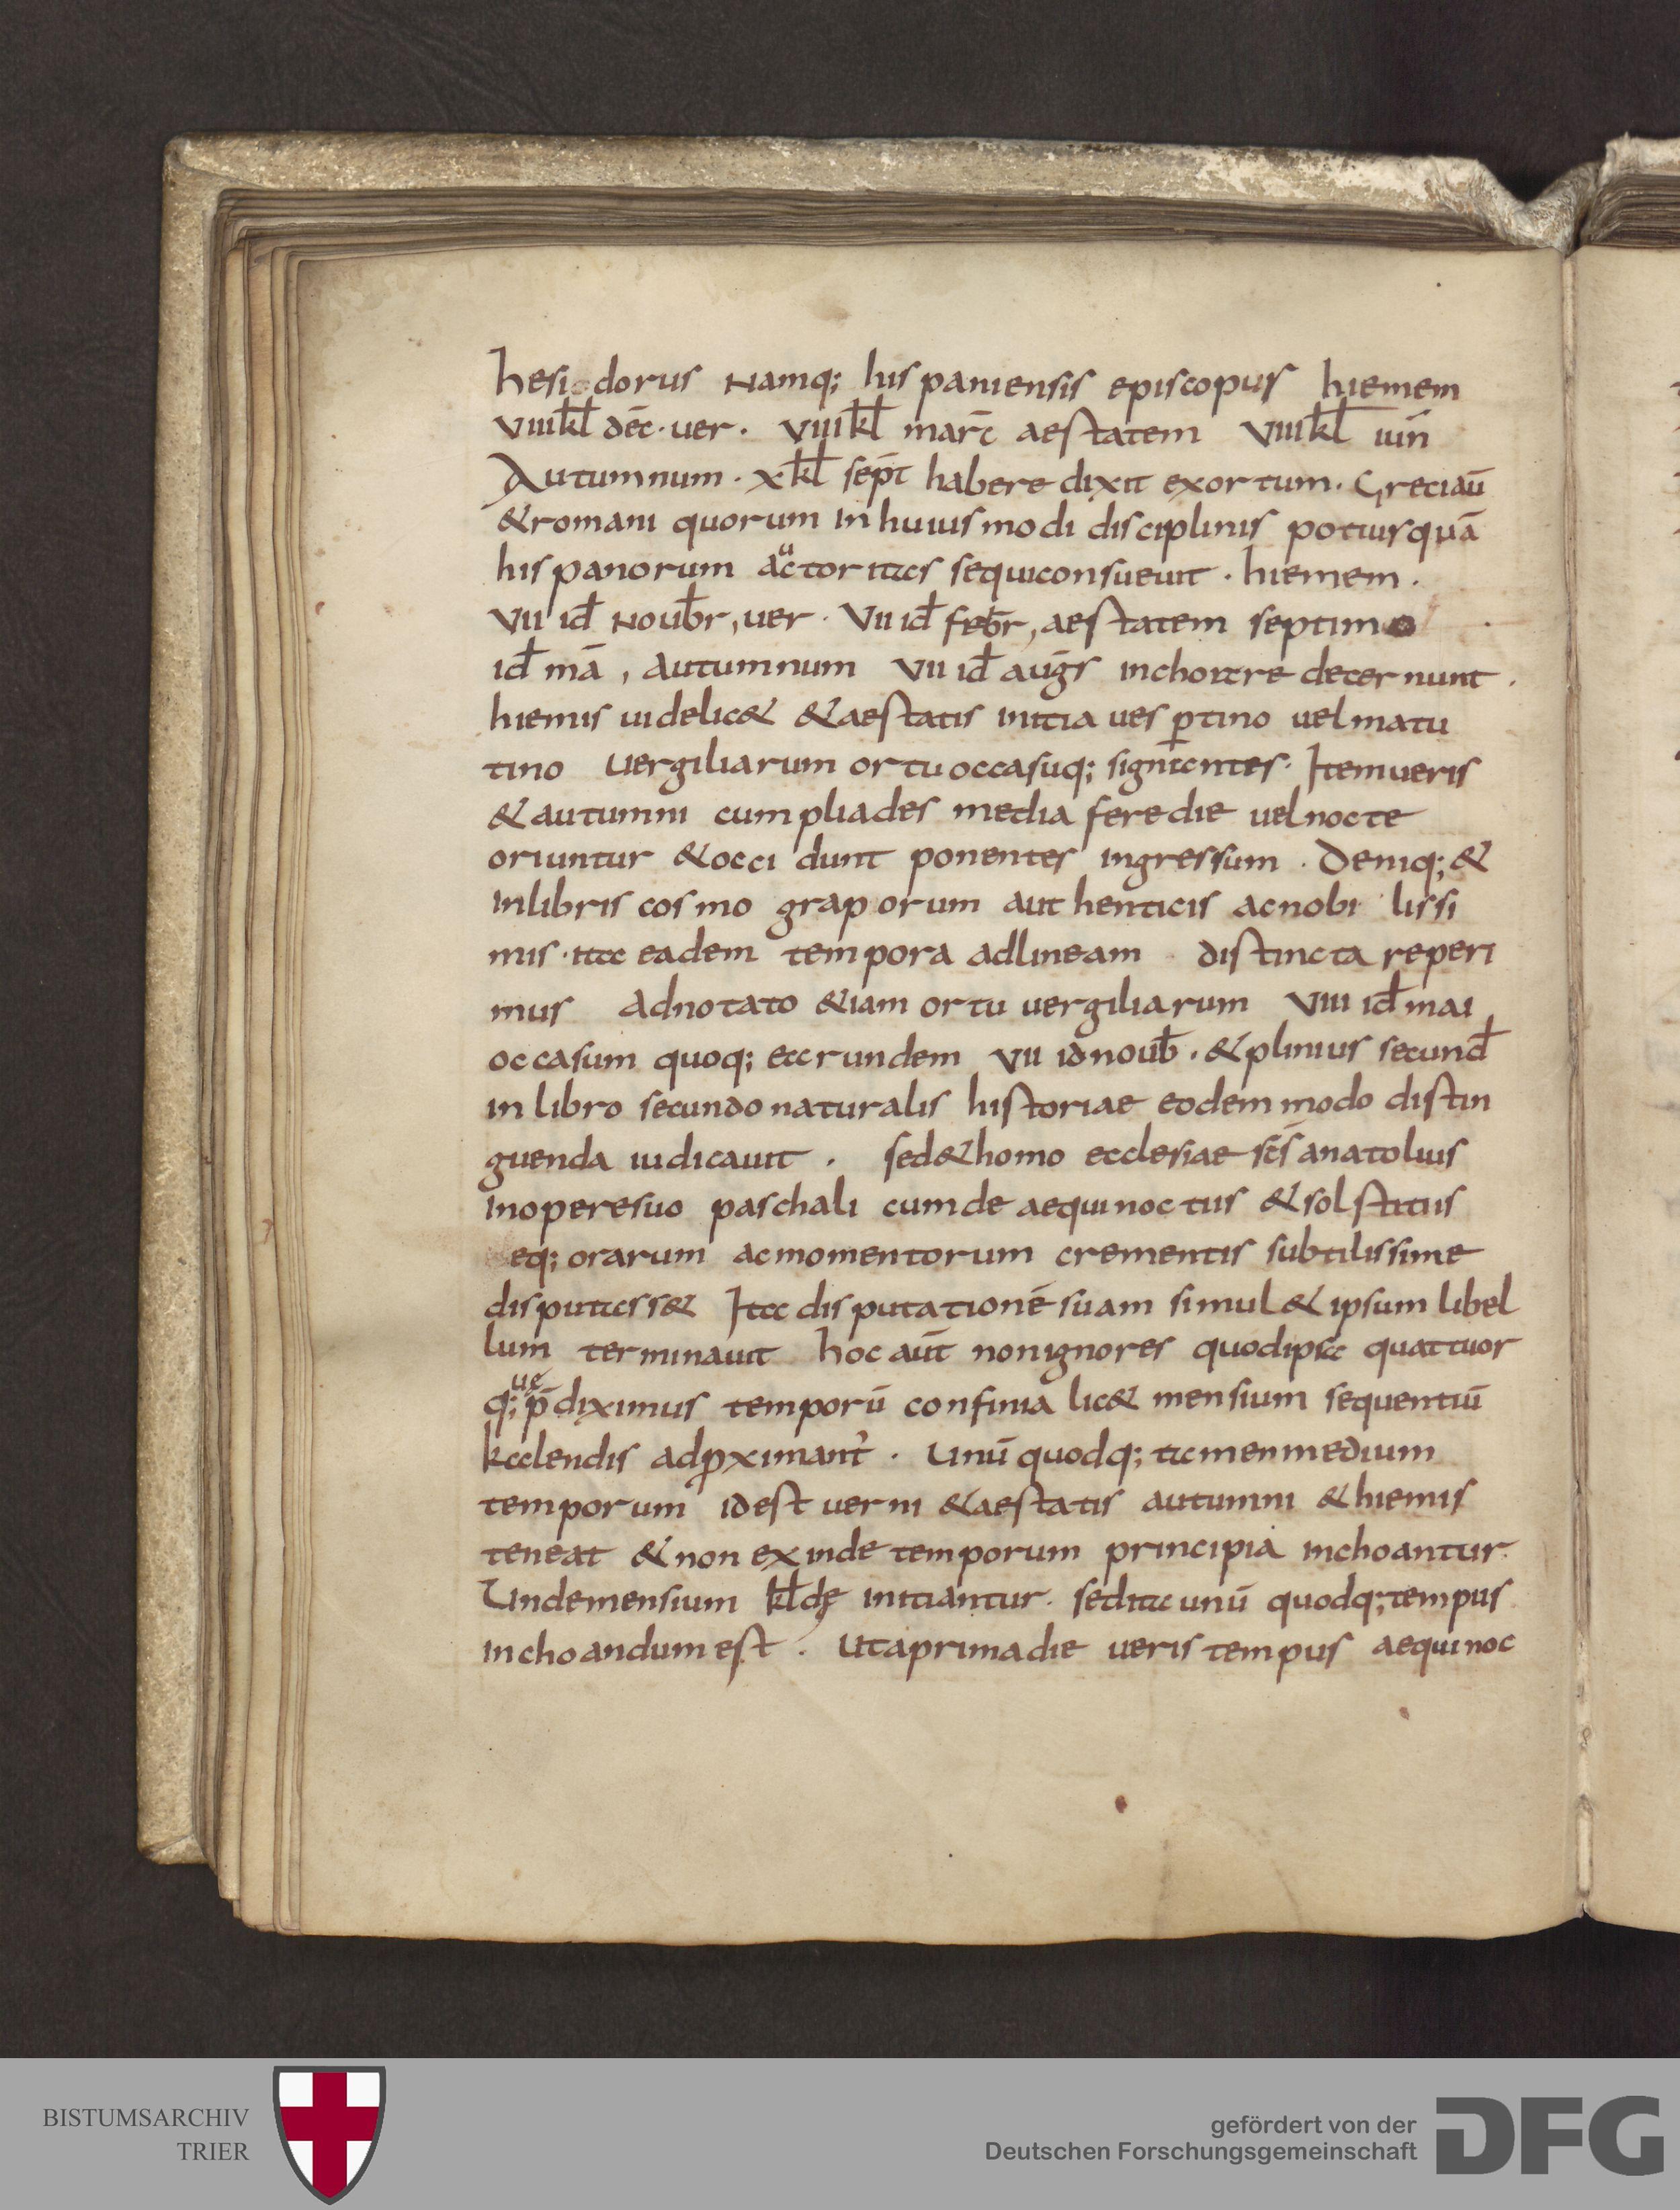 hesi dorus Namq; his paniensis episcopus hiemem
VIIIkl̄ dēc · uer · VIIIkl̄ mar̄c aestatem VIIIkl̄ iun̄
Autumnum · Xkl̄ sep̄t habere dixit exortum · Greciaū
&romani quorum in huius modi disciplinis potiusquā
his panorum auctoritas sequiconsueuit · hiemem ·
VII id̄ Noub̄r, uer · VII id̄ feb̄r, aestatem septimo
id̄ mā, Autumnum VII id̄ aug̅s inchoare decernunt ·
hiemis uidelic& &aestatis initia ues ꝑtino uelmatu
tino Uergiliarum ortuoccasuq; signantes · Itemueris
&autumni cum pliades media feredie uelnocte
oriuntur &occi dunt ponentes ingressum · Deniq; &
inlibris cosmo grap orum aut henticis acnobi lissi
mis · ita eadem tempora adlineam distincta reperi
mus Adnotato &iam ortu uergiliarum VIII id̄ mai
occasum quoq; earundem VII idnoub̄ · &plinius secund̄
in libro secundo naturalis historiae eodem modo distin
guenda iudicauit · sed&homo ecclesiae sc̄s anatolius
inoperesuo paschali cumde aequinoctiis &solstitiis
eq; orarum acmomentorum crementis subtilissime
disputass& Ita disputationē suam simul & ipsum libel
lum terminauit hoc aūt nonignores quodipsa quattuor
q; ue p̄diximus temporū confinia lic& mensium sequentiū
kalendis adꝓximant᾽ · Unū quodq; tamenmedium
temporum idest uerni &aestatis autumni &hiemis
teneat &non exinde temporum principia inchoantur ·
Undemensium kl̄dę initiantur · sedita unū quodq; tempus
inchoandumest · Utaprimadie ueris tempus aequinoc
BISTUMSARCHIV
TRIER
gefördert von der
Deutschen Forschungsgemeinschaft
DFG